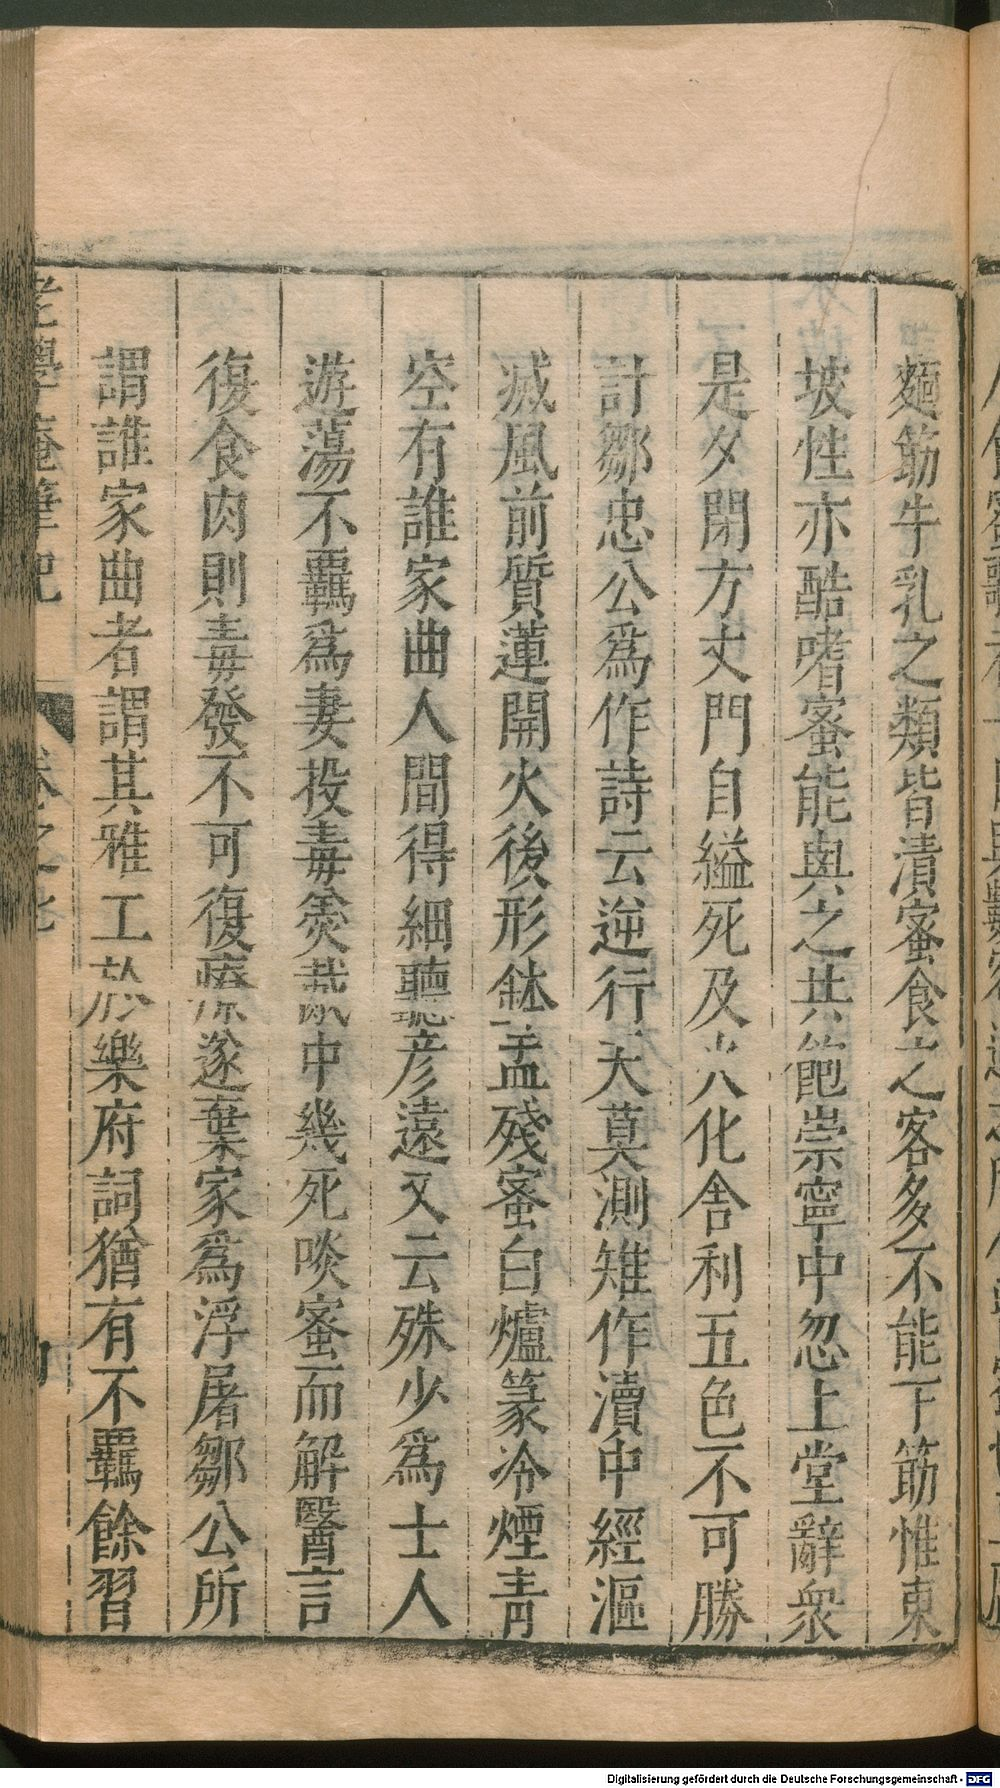 麵筋牛乳之類皆漬蜜食之客多不能下筯惟東
坡性亦酷嗜蜜能與之共飽崇寧中忽上堂辭衆
是夕閉方丈門自縊死及火化舍利五色不可勝
計鄒忠公爲作詩云逆行天莫測雉作瀆中經漚
滅風前質蓮開火後形鉢盂殘蜜白爐篆冷煙青
空有誰家曲人間得細聽彦遠又云殊少爲士人
遊蕩不羈爲妻投毒羮胾中幾死啖蜜而解醫言
復食肉則毒發不可復療遂棄家爲浮屠鄒公所
謂誰家曲者謂其雅工於樂府詞猶有不羈餘習
老學庵筆記
卷之七
Digitalisierung gefördert durch die Deutsche Forschungsgemeinschaft - DFG